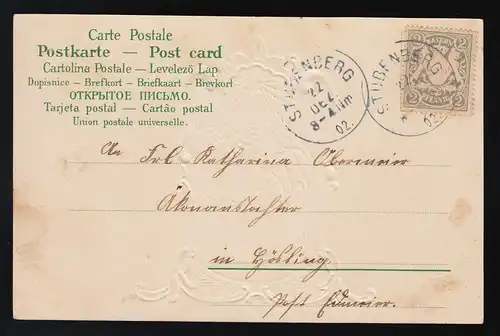 Carte Postale
Postkarte — Post card
Cartolina Postale — Levelező Lap
Dopisnice — Brefkort — Briefkaart — Brevkort
ОТКРЫТОЕ ПИСЬМО.
Tarjeta postal — Cartão postal
Union postale universelle.
STUBENBERG
22
DEZ.
8-
Nm
02.
STUBENBERG
02.
2 2
2 2
An Frl Katharina Obermeier
Ökonomstochter
in Hösling
Post